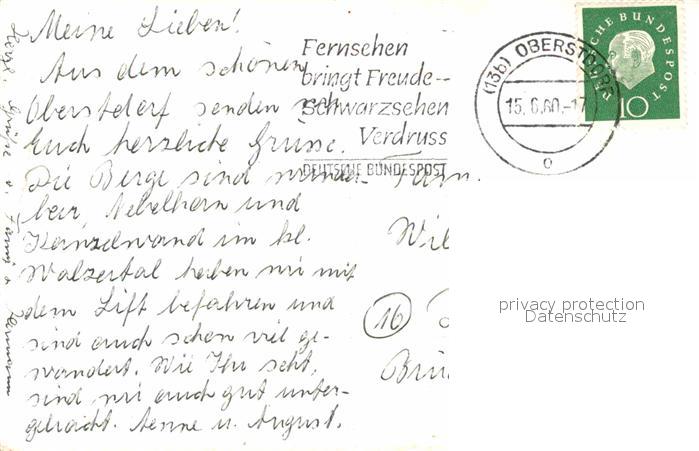 Meine Lieben!
Aus dem schönen
Oberstdorf senden wir
Euch herzliche Grüsse.
Die Berge sind wunder-
bar, Nebelhorn und
Kanzelwand im kl.
Walzertal haben wir mit
dem Lift befahren und
sind auch schon viel ge-
wandert. Wie Ihr seht,
sind wir auch gut unter-
gebracht. Aenne u. August.
Herzl. Grüße v. Fanny u. Hermann
Fernsehen
bringt Freude--
Schwarzsehen
Verdruss
DEUTSCHE BUNDESPOST
(13b) OBERSTDORF
15.6.60.-17
o
DEUTSCHE BUNDESPOST
10
Fam.
Wil
16
Brü
privacy protection
Datenschutz